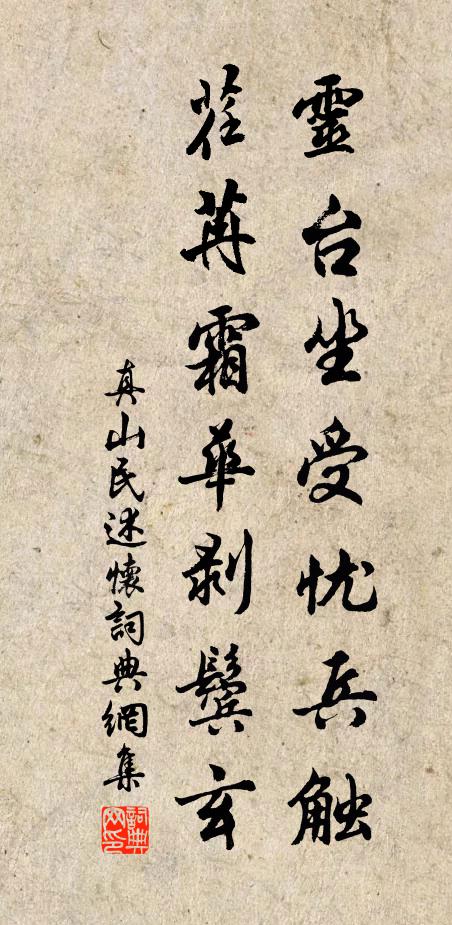 靈台坐受忧兵触
荏苒霜華剥鬓玄
真山民述懷詞典網集
詞典网印